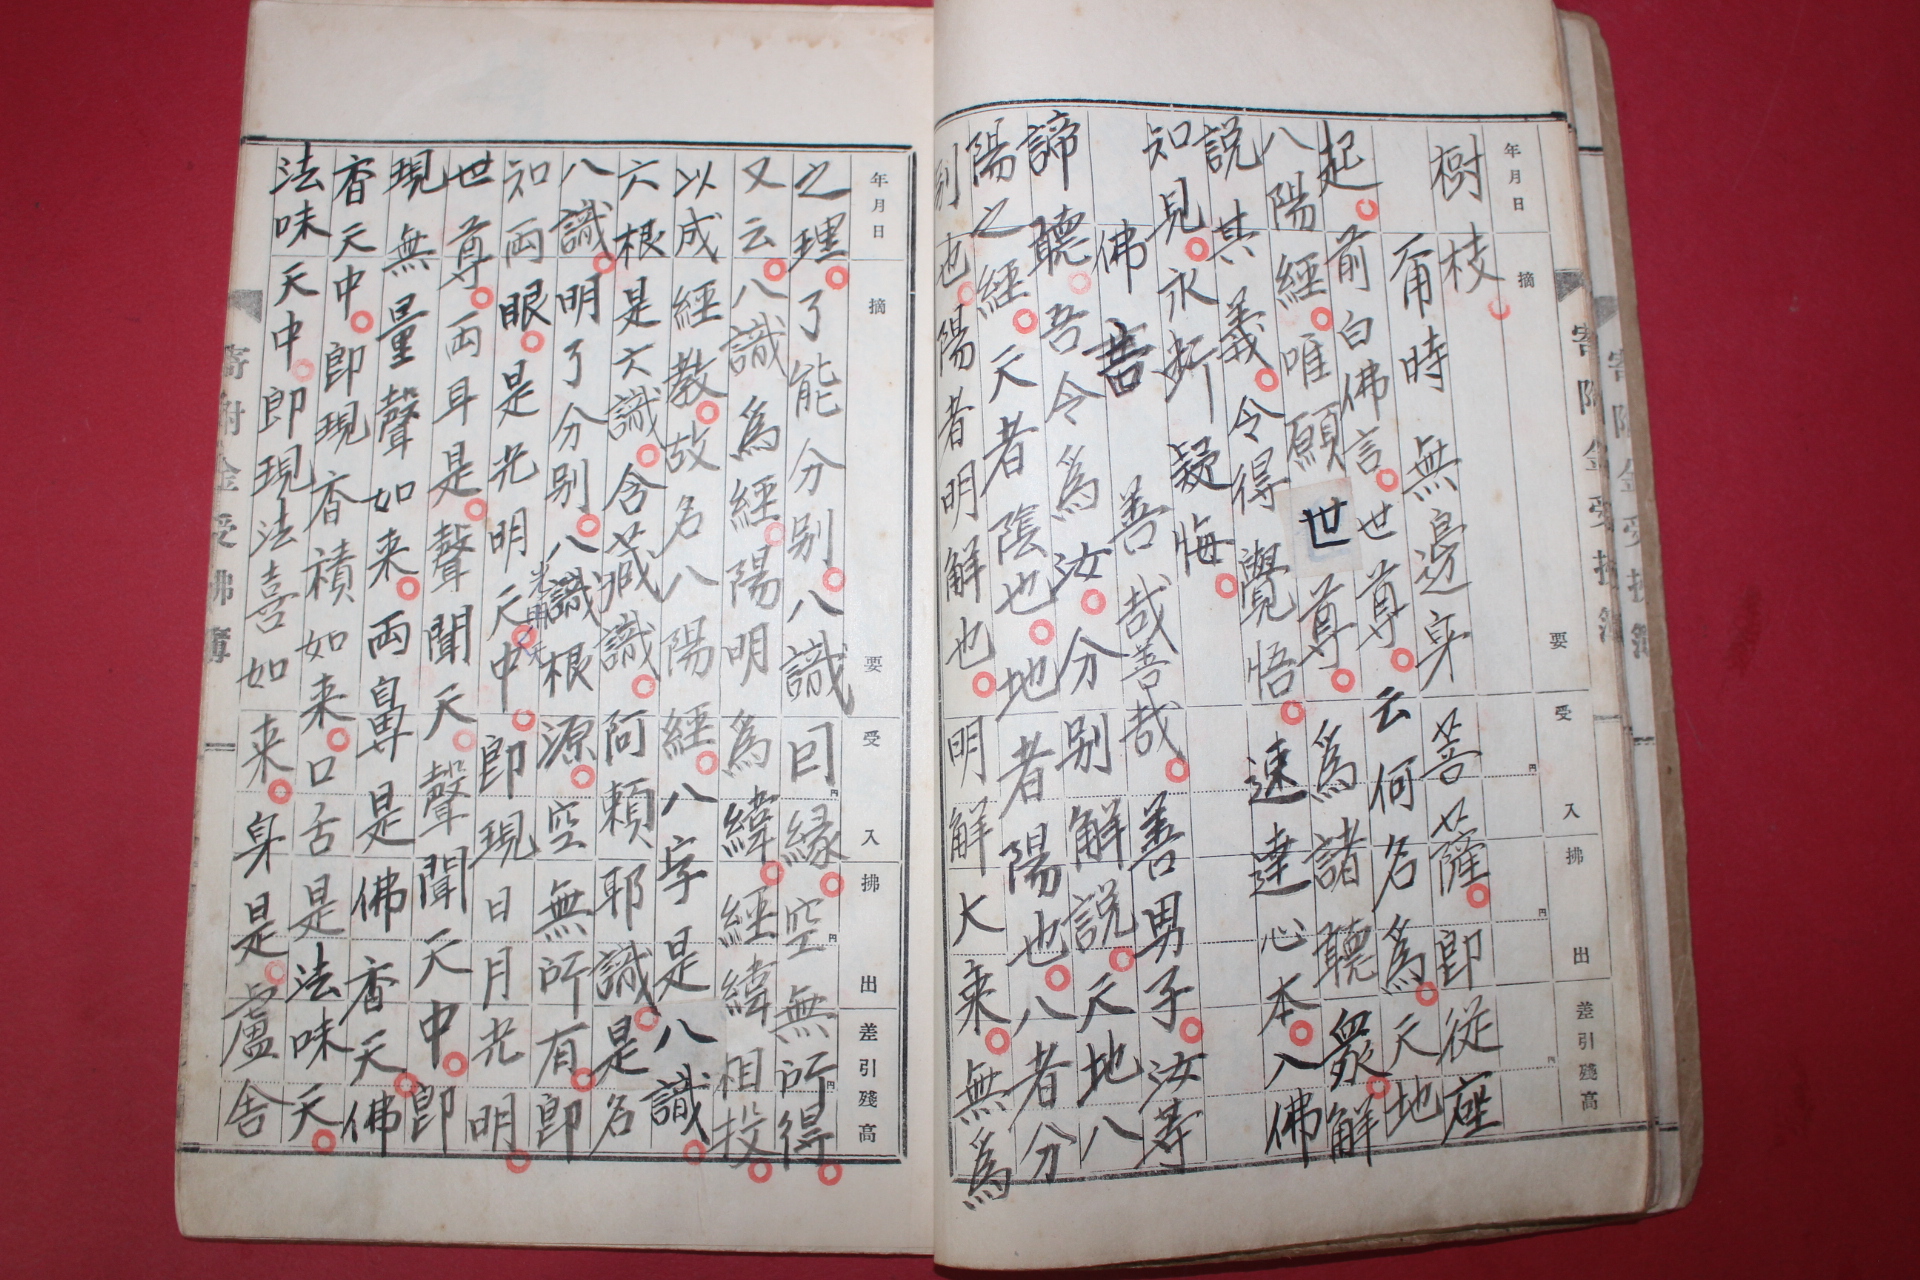 年月日
摘
要
受
入
拂
出
差引殘高
樹枝
爾時無邊身菩薩即從座
起前白佛言世尊云何名為天地
八陽經唯願世尊為諸聽衆解
說其義令得覺悟速達心本入佛
知見永斷疑悔
佛言善哉善哉善男子汝等
諦聽吾今為汝分别解説天地八
陽之經天者陰也地者陽也八者分
别也陽者明解也明解大乘無為
年月日
摘
要
受
入
拂
出
差引殘高
之理了能分别八識囙緣空無所得
又云八識為經陽明為緯經緯相投
以成經教故名八陽經八字是八識
六根是六識含藏識阿賴耶識是名
八識明了分别八識根源空無所有即
知兩眼是光明天中即現日月光明
光明天
世尊兩耳是聲聞天聲聞天中即
現無量聲如来兩鼻是佛香天佛
香天中即現香積如来口舌是法味天
法味天中即現法喜如来身是盧舎
寄附金受拂簿